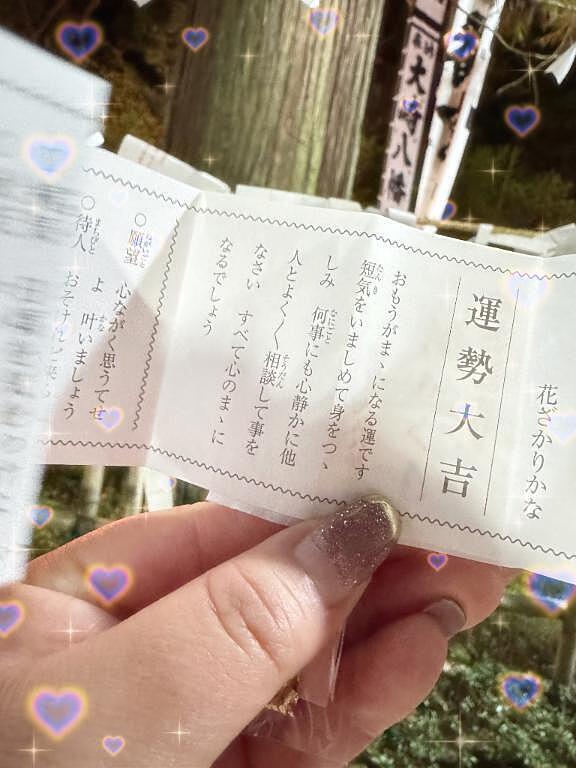 大崎八幡
花ざかりかな
運勢大吉
おもうがまゝになる運です
短気をいましめて身をつゝ
しみ 何事にも心静かに他
人とよくく相談して事を
なさい すべて心のまゝに
なるでしょう
○願望 心ながく思うてせ
よ 叶いましょう
○待人 おそけれど来